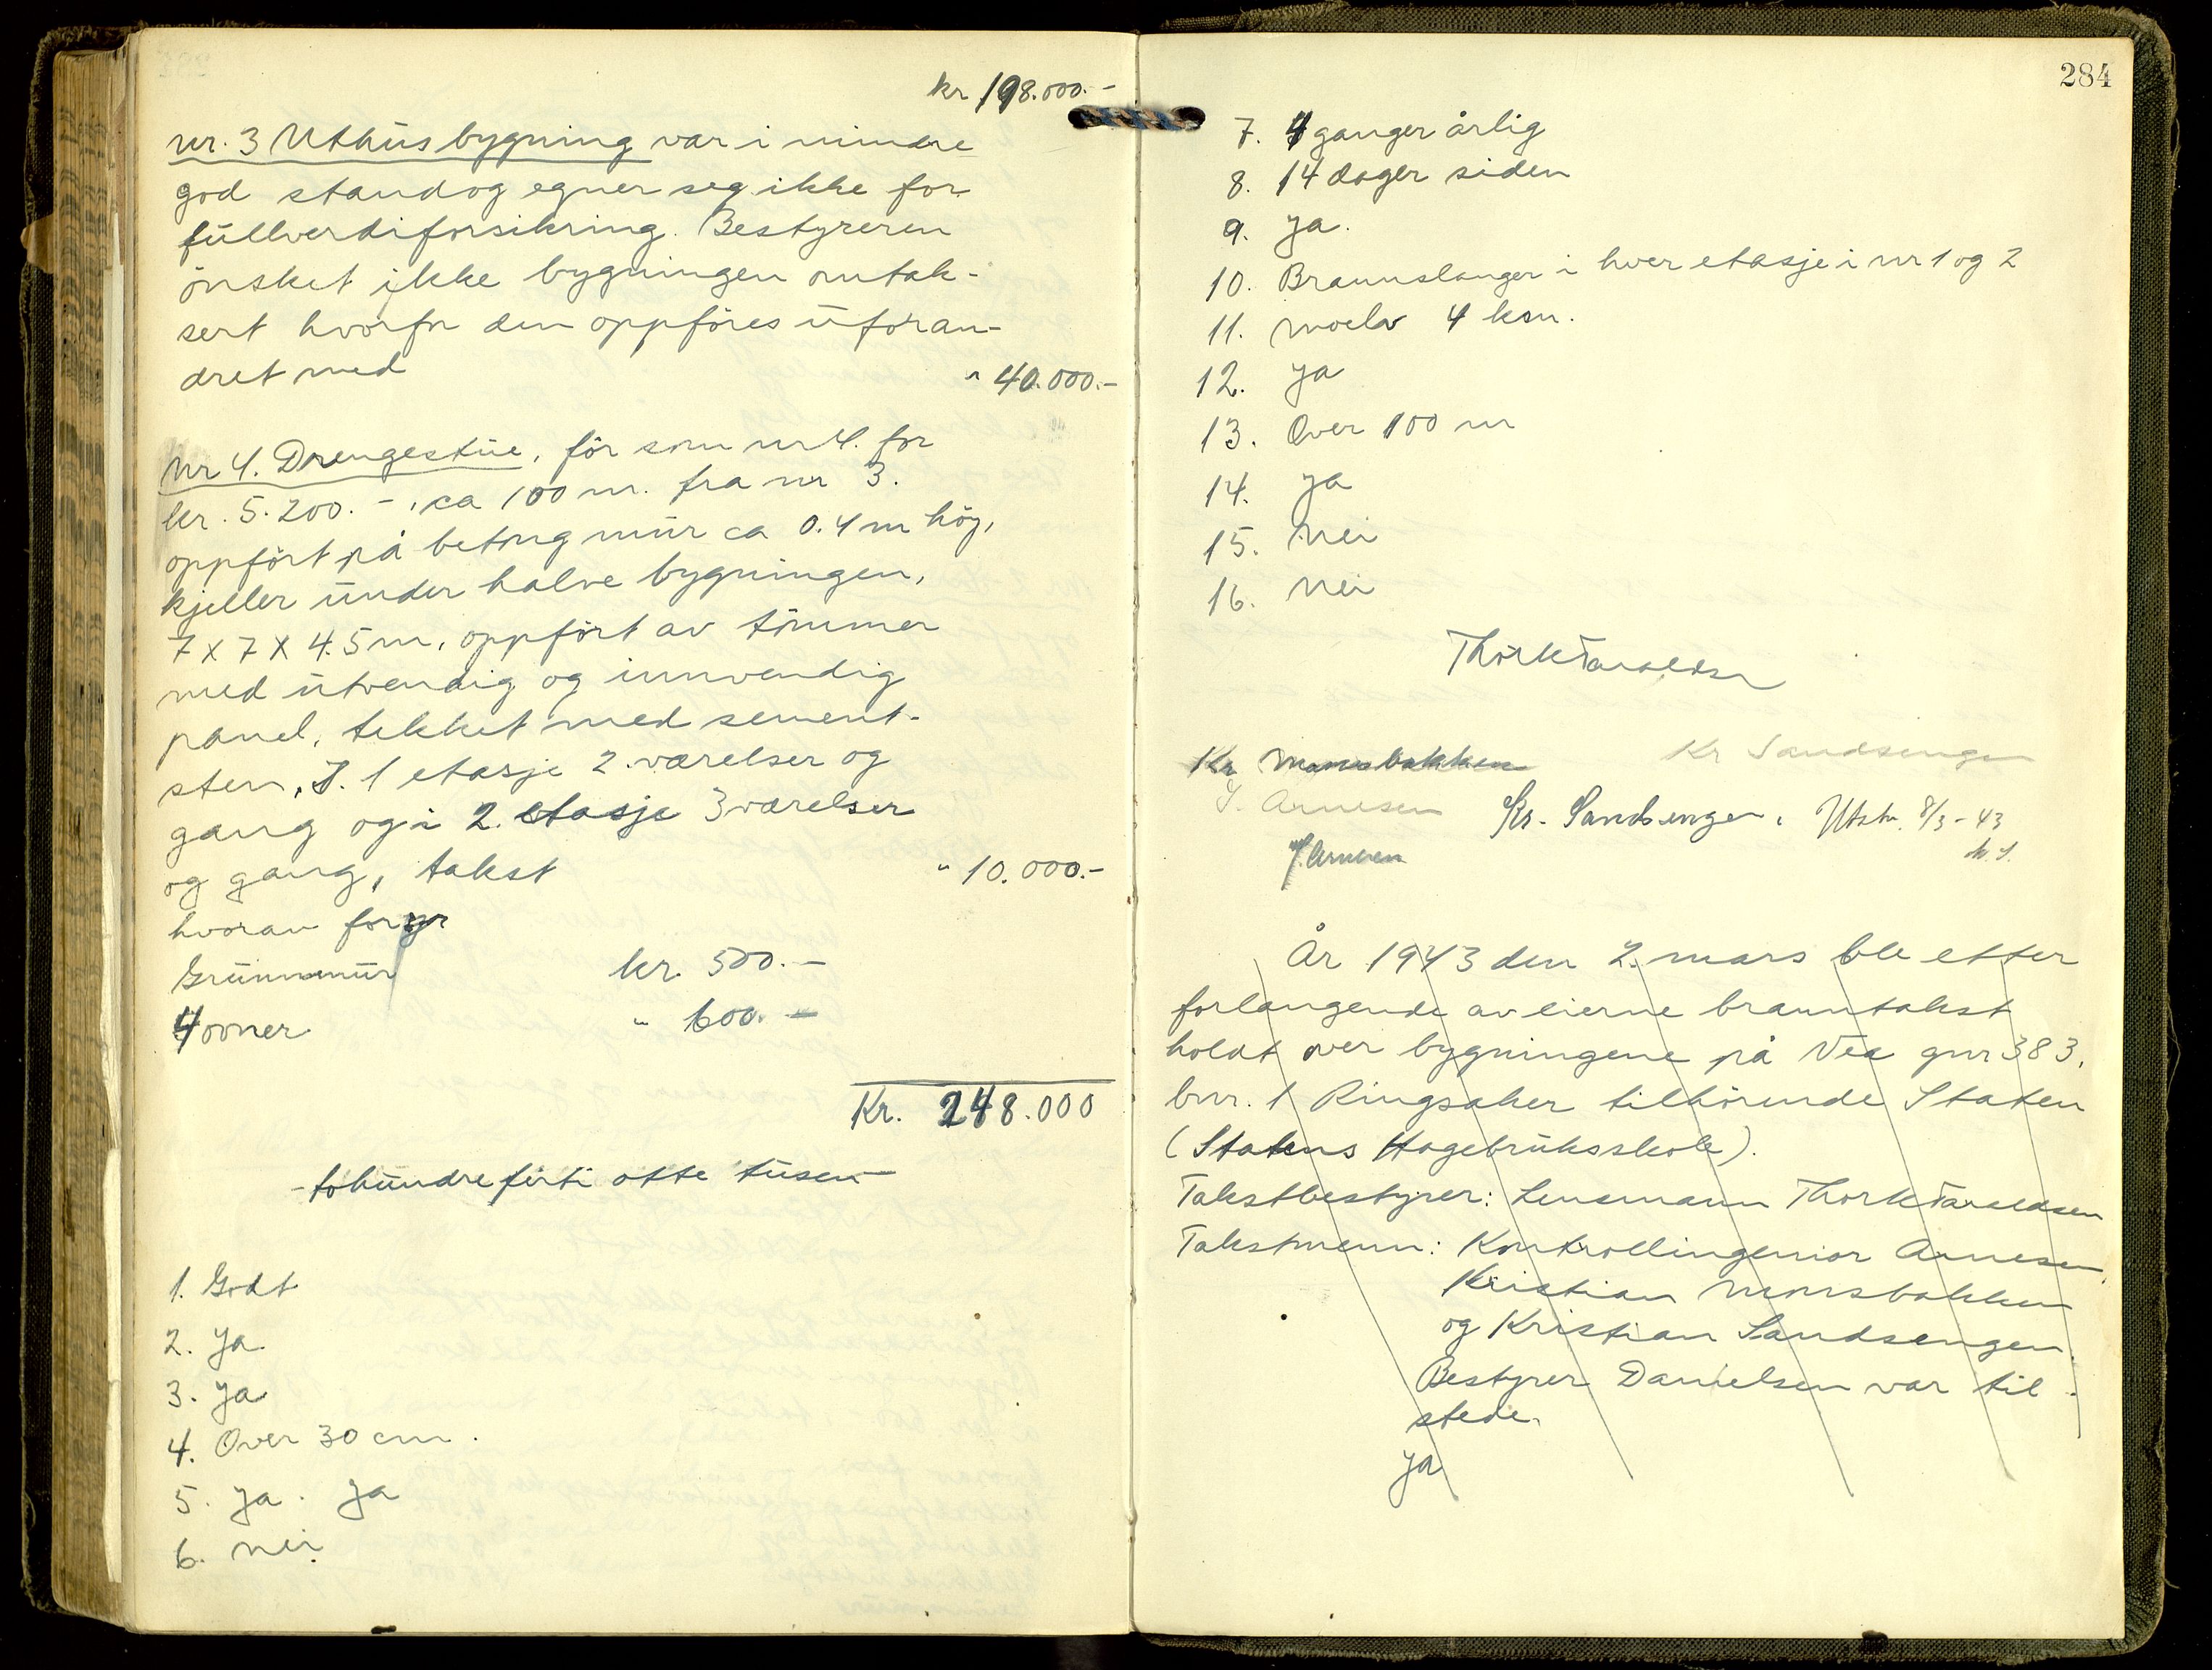 kr 198.000.-
nr. 3 Uthusbygning var i mindre
god stand og egner seg ikke for
fullverdiforsikring. Bestyreren
ønsket ikke bygningen omtak-
sert hvorfor den oppføres uforan-
dret med " 40.000.-
Nr 4. Drengestue, før som nr 4. for
kr. 5.200.-, ca 100 m. fra nr 3.
oppført på betong mur ca 0.4 m høy,
kjeller under halve bygningen,
7 x 7 x 4.5 m, oppført av tømmer
med utvendig og innvendig
panel, tekket med sement-
sten. I. 1 etasje 2 værelser og
gang og i 2. etasje 3 værelser
og gang, takst " 10.000.-
hvorav for
Grunnmur kr. 500.-
4 ovner " 600.-
Kr. 248.000
- tohundreførti otte tusen -
1. Godt
2. Ja
3. Ja
4. Over 30 cm.
5. Ja. Ja
6. Nei.
284
7. 4 ganger årlig
8. 14 dager siden
9. Ja.
10. Brannslanger i hver etasje i nr 1 og 2
11. Moelv 4 km.
12. Ja
13. Over 100 m
14. Ja
15. Nei
16. Nei
Thork Taraldsen
Kr Monsbakken Kr Sandsengen
J. Arnesen Kr. Sandsengen. Utstr. 8/3 - 43
J Arnesen
År 1943 den 2. mars ble etter
forlangende av eierne branntakst
holdt over bygningene på Vea gnr 383.
bnr. 1 Ringsaker tilhørende Staten
(Statens Hagebruksskole).
Takstbestyrer: Lensmann Thork Taraldsen
Takstmenn: Kontrollingeniør Arnesen,
Kristian Monsbakken
og Kristian Sandsengen.
Bestyrer Danielsen var til
stede.
Ja